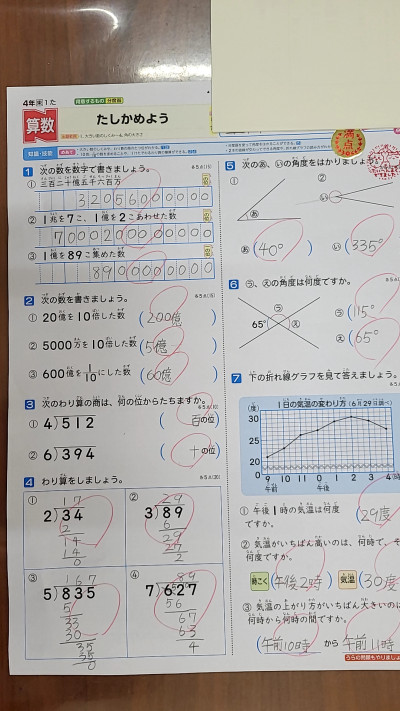 4年 1 た
算数
たしかめよう
用意するもの 分度器
知識・技能
満点
1 次の数を数字で書きましょう。 各5点(15)
① 三百二十億五千六百万
32056000000
② 1兆を7こ、1億を2こあわせた数
7000200000000
③ 1億を89こ集めた数
8900000000
2 次の数を書きましょう。 各5点(15)
① 20億を10倍した数 (200億)
② 5000万を10倍した数 (5億)
③ 600億を1/10にした数 (60億)
3 次のわり算の商は、何の位からたちますか。 各5点(10)
① 4)512 (百の位)
② 6)394 (十の位)
4 わり算をしましょう。 各5点(20)
①
17
2)34
2
14
14
0
②
29
3)89
6
29
27
2
③
167
5)835
5
33
30
35
35
0
④
89
7)627
56
67
63
4
5 次のあ、いの角度をはかりましょう。
① ②
あ い
あ (40°) い (335°)
6 う、えの角度は何度ですか。
う 65° え
う (115°
え (65°
7 下の折れ線グラフを見て答えましょう。
(度) 1日の気温の変わり方 (6月29日調べ)
30
25
20
15
10
0
9 10 11 12 1 2 3 4(時)
午前 午後
① 午後1時の気温は何度ですか。 (29度
② 気温がいちばん高いのは、何時で、そ
何度ですか。
時こく (午後2時) 気温 (30度
③ 気温の上がり方がいちばん大きいのは
何時から何時の間ですか。
(午前10時 から 午前11時
うらの問題もやりましょ